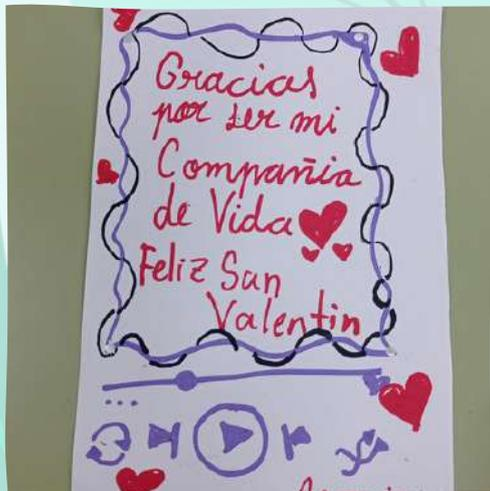 Gracias
por ser mi
Compañia
de Vida
Feliz San
Valentin